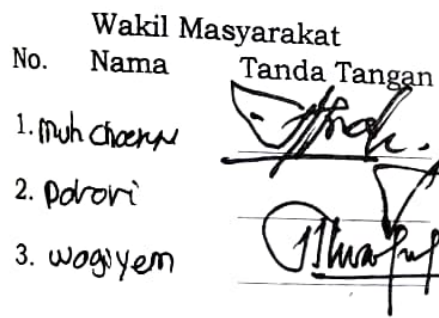 Wakil Masyarakat
No. Nama Tanda Tangan
1. Muh
2. Darori
3. wagiyem